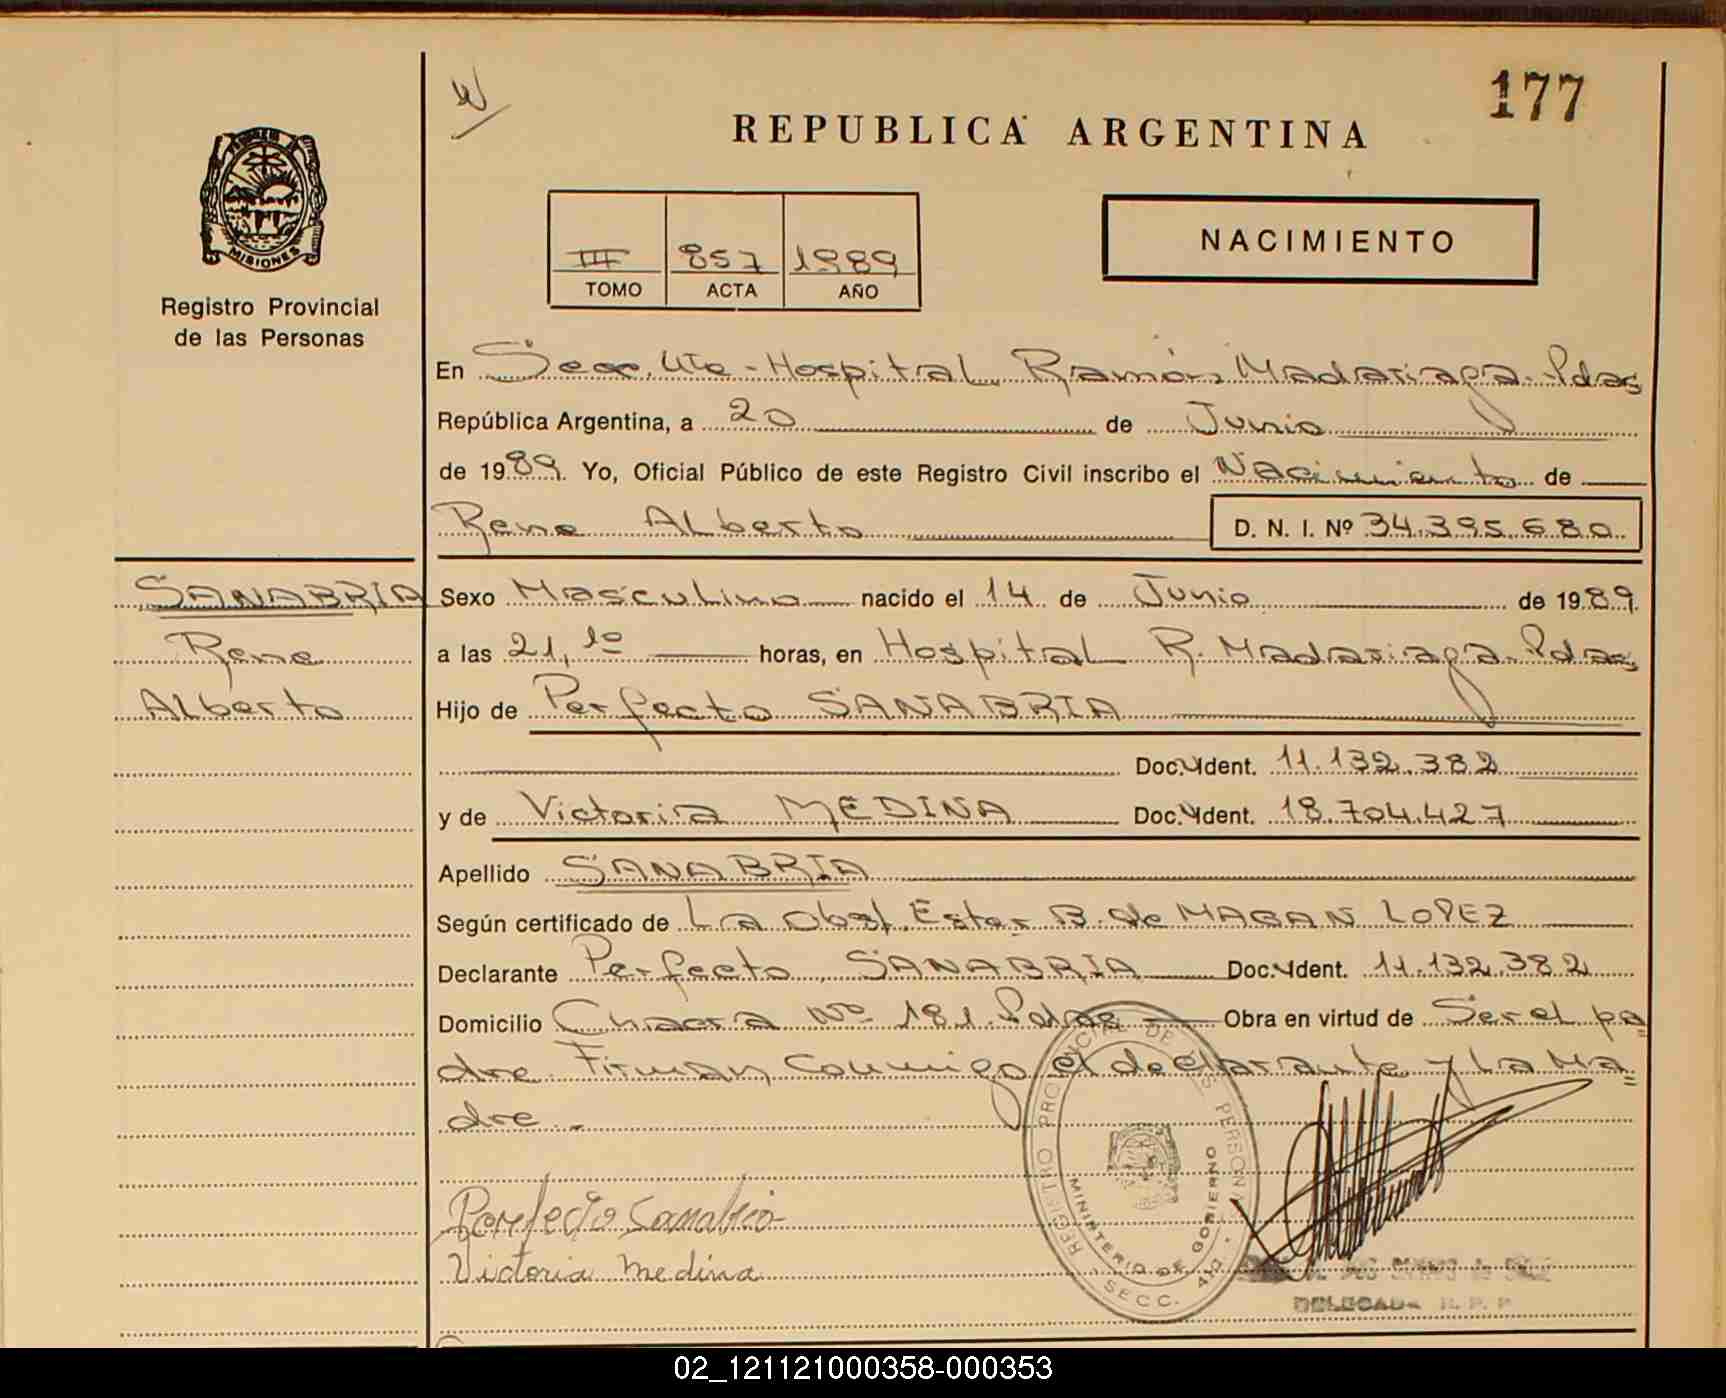 177
REPUBLICA ARGENTINA
MISIONES
Registro Provincial
de las Personas
III 857 1989
TOMO ACTA AÑO
NACIMIENTO
En Secc. 4ta - Hospital Ramón Madariaga - Pdas
República Argentina, a 20 de Junio
de 1989. Yo, Oficial Público de este Registro Civil inscribo el Nacimiento de
Rene Alberto D. N. I. Nº 34.395.680
SANABRIA
Rene
Alberto
Sexo Masculino nacido el 14 de Junio de 1989
a las 21,10 horas, en Hospital R. Madariaga - Pdas
Hijo de Perfecto SANABRIA
Doc. Ident. 11.132.382
y de Victoria MEDINA Doc. Ident. 18.704.427
Apellido SANABRIA
Según certificado de La Obst. Ester B. de MAGAN LOPEZ
Declarante Perfecto SANABRIA Doc. Ident. 11.132.382
Domicilio Chacra Nº 181. Pdas Obra en virtud de Ser el pa=
dre. Firman conmigo el declarante y La Ma=
dre.-
Perfecto Sanabria
Victoria Medina
REGISTRO PROVINCIAL DE LAS PERSONAS
MINISTERIO DE GOBIERNO
SECC. 4ta.
DELEGADA R. P. P.
02_121121000358-000353